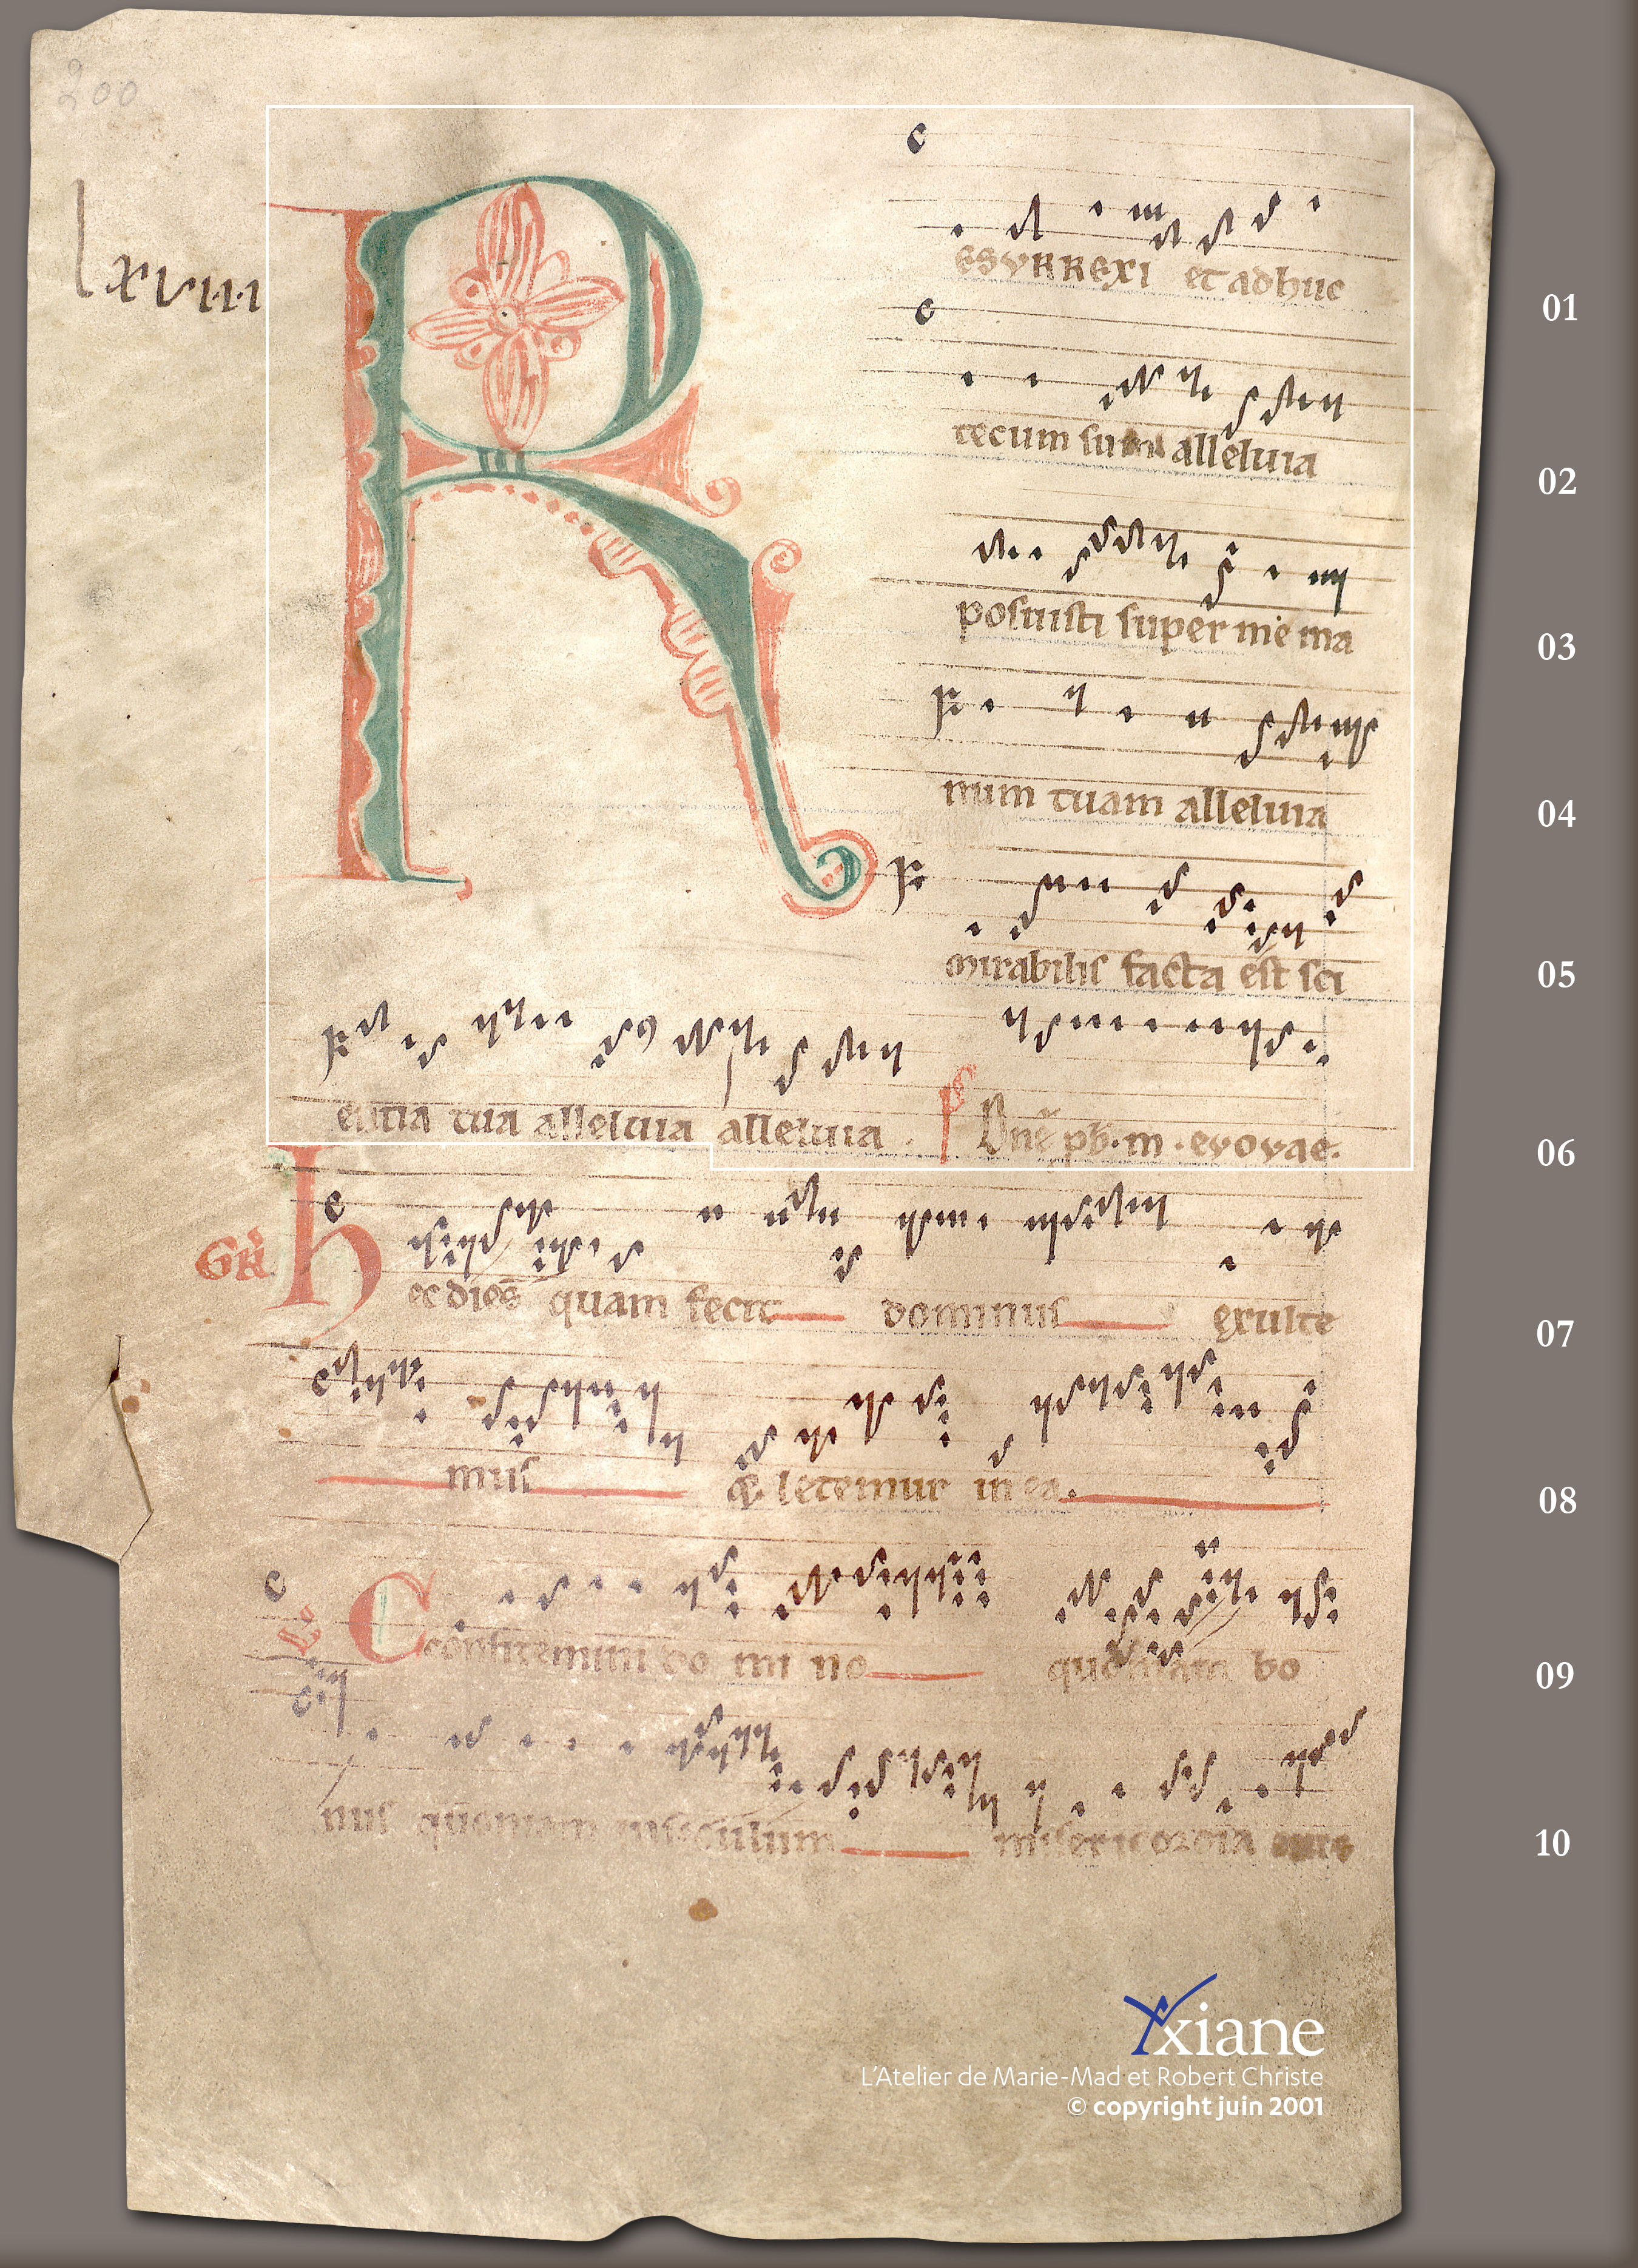 200
lxviiii
RESURREXI et adhuc
01
tecum sum alleluia
02
posuisti super me ma
03
num tuam alleluia
04
mirabilis facta est sci
05
entia tua alleluia alleluia . ps Dnē pb. m . evovae.
06
GR̄ hec dies quam fecit dominus exulte
07
mus & letemur in ea.
08
Confitemini domino quoniam bo
09
nus quoniam in seculum misericordia eius
10
Axiane
L'Atelier de Marie-Mad et Robert Christe
© copyright juin 2001